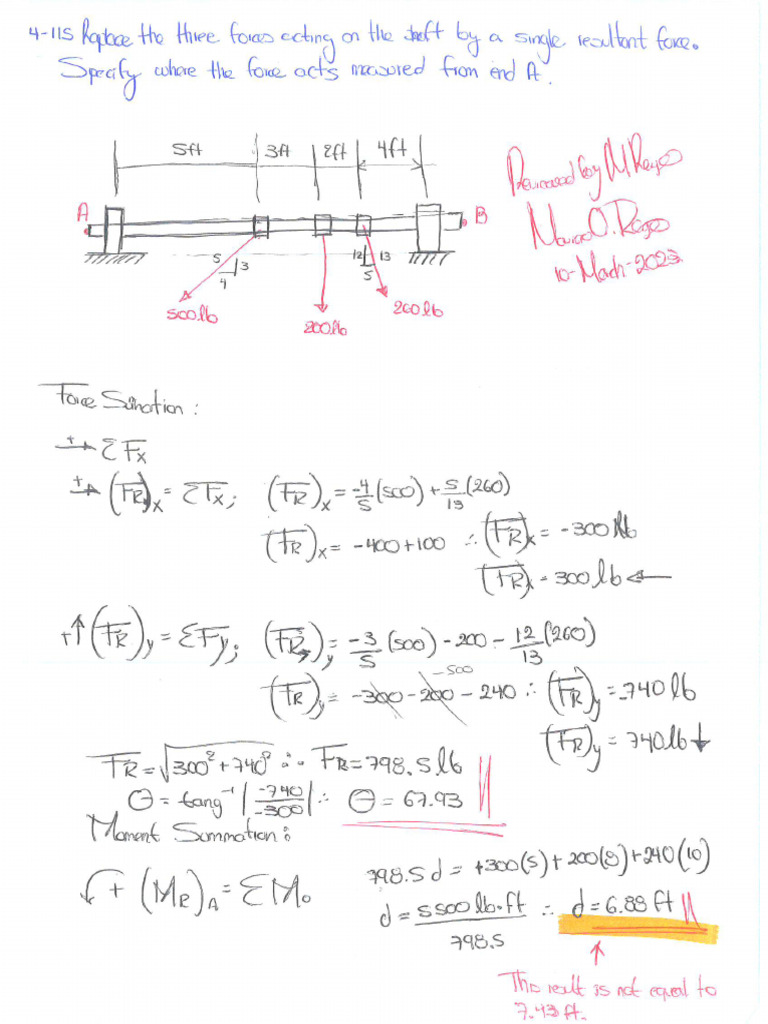 4-115 Replace the three forces acting on the shaft by a single resultant force.
Specify where the force acts measured from end A.
5ft 3ft 2ft 4ft
Reviewed by M Reyes
A B
10-March-2023
5 3 4
12 13 5
500lb 200lb 260lb
Force Summation:
+→ ΣFx
+→ (FR)x = ΣFx; (FR)x = -4/5 (500) + 5/13 (260)
(FR)x = -400+100 ∴ (FR)x = -300 lb
(FR)x = 300 lb ←
+↑ (FR)y = ΣFy; (FR)y = -3/5 (500) - 200 - 12/13 (260)
-500
(FR)y = -300 - 200 - 240 ∴ (FR)y = -740 lb
(FR)y = 740 lb ↓
FR = √300² + 740² ∴ FR = 798.5 lb
θ = tang⁻¹ |-740/-300| ∴ θ = 67.93
Moment Summation:
798.5 d = +300(5) + 200(8) + 240(10)
+ (MR)A = ΣMo
d = 5500 lb·ft/798.5 ∴ d = 6.88 ft
This result is not equal to
7.43 ft.